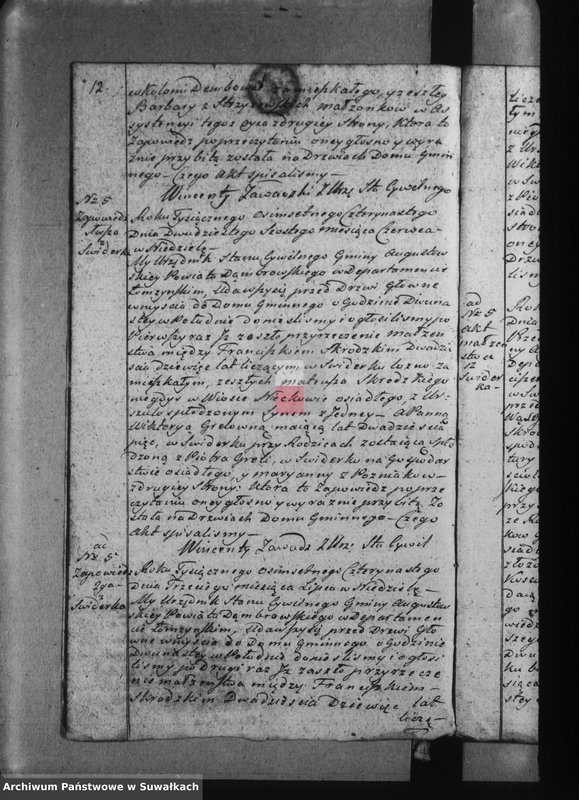 12.
w koloni Dembowo zamieszkałego, y zeszłey
Barbary z Strzyzewskich małzonkow w As
systencyi tegoz oyca z drugiey Strony, Ktora to
Zapowiedz po przeczytaniu oney głosno y wyra
znie przybita została na Drzwiach Domu Gmin
nego — Czego Akt spisalismy —
Wincenty Zawadzki Urz: Sta: Cywilnego
No 5
Zapowiedz
1sza
z
Swiderka
Roku Tysiącznego osimsetnego Czternastego
Dnia Dwudziestego Szostego miesiąca Czerwca
w Niedzielę —
My Urzędnik Stanu Cywilnego Gminy Augustow
skiey Powiatu Dąmbrowskiego w Departamencie
Łomzynskim, Udawszysię przed Drzwi głowne
wniyscia do Domu Gminnego o Godzinie Dwuna
stey w Południe doniesliśmy i ogłosilismy po
Pierwszy raz Jz zaszło przyrzeczenie małzen
stwa między Franciszkiem Skrodzkim Dwadzie
scia Dziewięc lat liczącym, w Swiderku Łozno za
mieszkałym, zeszłych Mateusza Skrodzkiego
niegdys w Wiosce Neckowie osiadłego, z Ur
szulą spłodzonym synem z Jedney — A Panną
Wiktoryą Grelowną maiącą lat Dwadziescia
pięc, w Swiderku przy Rodzicach zostaiącą Spło
dzoną z Piotra Greli, w Swiderku na Gospodar
stwie osiadłego, y Maryanny z Pozniakow —
z drugiey Strony. Ktora to Zapowiedz po prze
czytaniu oney głosno y wyraznie przybita Zo
stała na Drzwiach Domu Gminnego — Czego
Akt spisalismy —
Wincenty Zawadz Urz: Sta: Cywil
ad
No 5
Zapowiedz
2ga
z
Swiderka
Roku Tysiącznego osimsetnego Czternastego
Dnia Trzeciego miesiąca Lipca w Niedzielę —
My Urzędnik Stanu Cywilnego Gminy Augustow
skiey Powiatu Dąmbrowskiego w Departamen
cie Łomzynskim, Udawszysię przed Drzwi Gło
wne wniyscia do Domu Gminnego o Godzinie
Dwunastey w Południe doniesliśmy i ogłosi
lismy po Drugi raz Jz zaszło przyrzecze
nie małzenstwa między Franciszkiem
Skrodzkim Dwadziescia Dziewięc lat
liczą—
ad
No 5
Akt
małzen
stwa
z
Swider
ka—
Archiwum Państwowe w Suwałkach